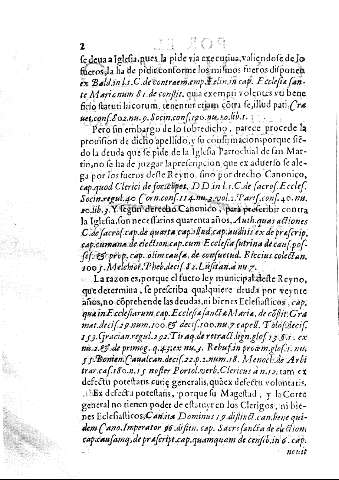 2
se deua a Iglesia, pues la pide via executiua, valiendose de lo
fueros, la ha de pidir conforme los mismos fueros disponen
ex Bald. in l. 1. C. de contraem. emp. Felin. in cap. Ecclesia san-
te Mariæ num 81. de constit. qua exempti volentes vti bene
ficio statuti laicorum, tenentur etiam cõtra se, illud pati. Cra
uet. cons. 802. nu. 9. Socin. cons. 190. nu. 20. lib. 1.
Pero sin embargo de lo sobredicho, parece procede la
prouision de dicho apellido, y su confirmacion porque sie-
do la deuda que se pide de la Iglesia Parrochial de san Mar-
tin, no se ha de juzgar la prescripcion que ex aduerso se ale-
ga por los fueros deste Reyno, sino por derecho Canonico,
cap. quod Clerici de foro comp. DD in l. 1. C de sacros. Eccles.
Socin. regul. 40 Corn. cons. 114. nu. 2. vol. 1. Paris. cons. 40. nu.
10. lib. 3. Y segun derecho Canonico, para prescribir contra
la Iglesia, son necessarios quarenta años, Auth. quas actiones
C. de sacros. cap. de quarta cap. illud, cap. auditis ex de præscrip,
cap. cumana de election. cap. cum Ecclesia sutrina de caus. pos-
ses. & prop. cap. olim causa. de consuetud. Ricciu s colectan.
1005. Melchor. Pheb. decis. 82. Lusitan. à nu 7.
La razon es, porque el fuero ley municipal deste Reyno,
que determina, se prescriba qualquiere deuda por veynte
años, no cõprehende las deudas, ni bienes Eclesiasticos, cap.
quæ in Ecclesiarum cap. Ecclesia sanctæ Mariæ, de cõstit. Gra
mat. decis. 29. num. 100. & decis. 100. nu. 7 capell. Tolos. decis.
153. Gracian. regul. 292. Tiraq. de retract. lign. glos. 13. §. 1. ex
nu. 2. & de primog. q. 43. ex nu. 3. Rebuf. in proœm. glos. 5. nu.
55. Bonien. Caualcan. decis. 22. p. 2. num. 18. Menoch. de Arbi
trar. cas. 180. n. 15 noster Portol. verb. Clericus à n. 12. tam ex
defectu potestatis curiæ generalis, quàex defectu voluntatis.
Ex defecta potestatis, porque su Magestad, y la Corte
general no tienen poder de estatuyr en los Clerigos, ni bie-
nes Eclesiasticos, Can. ita Dominus 19. distinct. can. bene qui-
dem Cano. Imperator 96. distin. cap. Sacrosancta de election.
cap. causamq. de præscript. cap. quamquam de censib. in 6. cap.
neuit